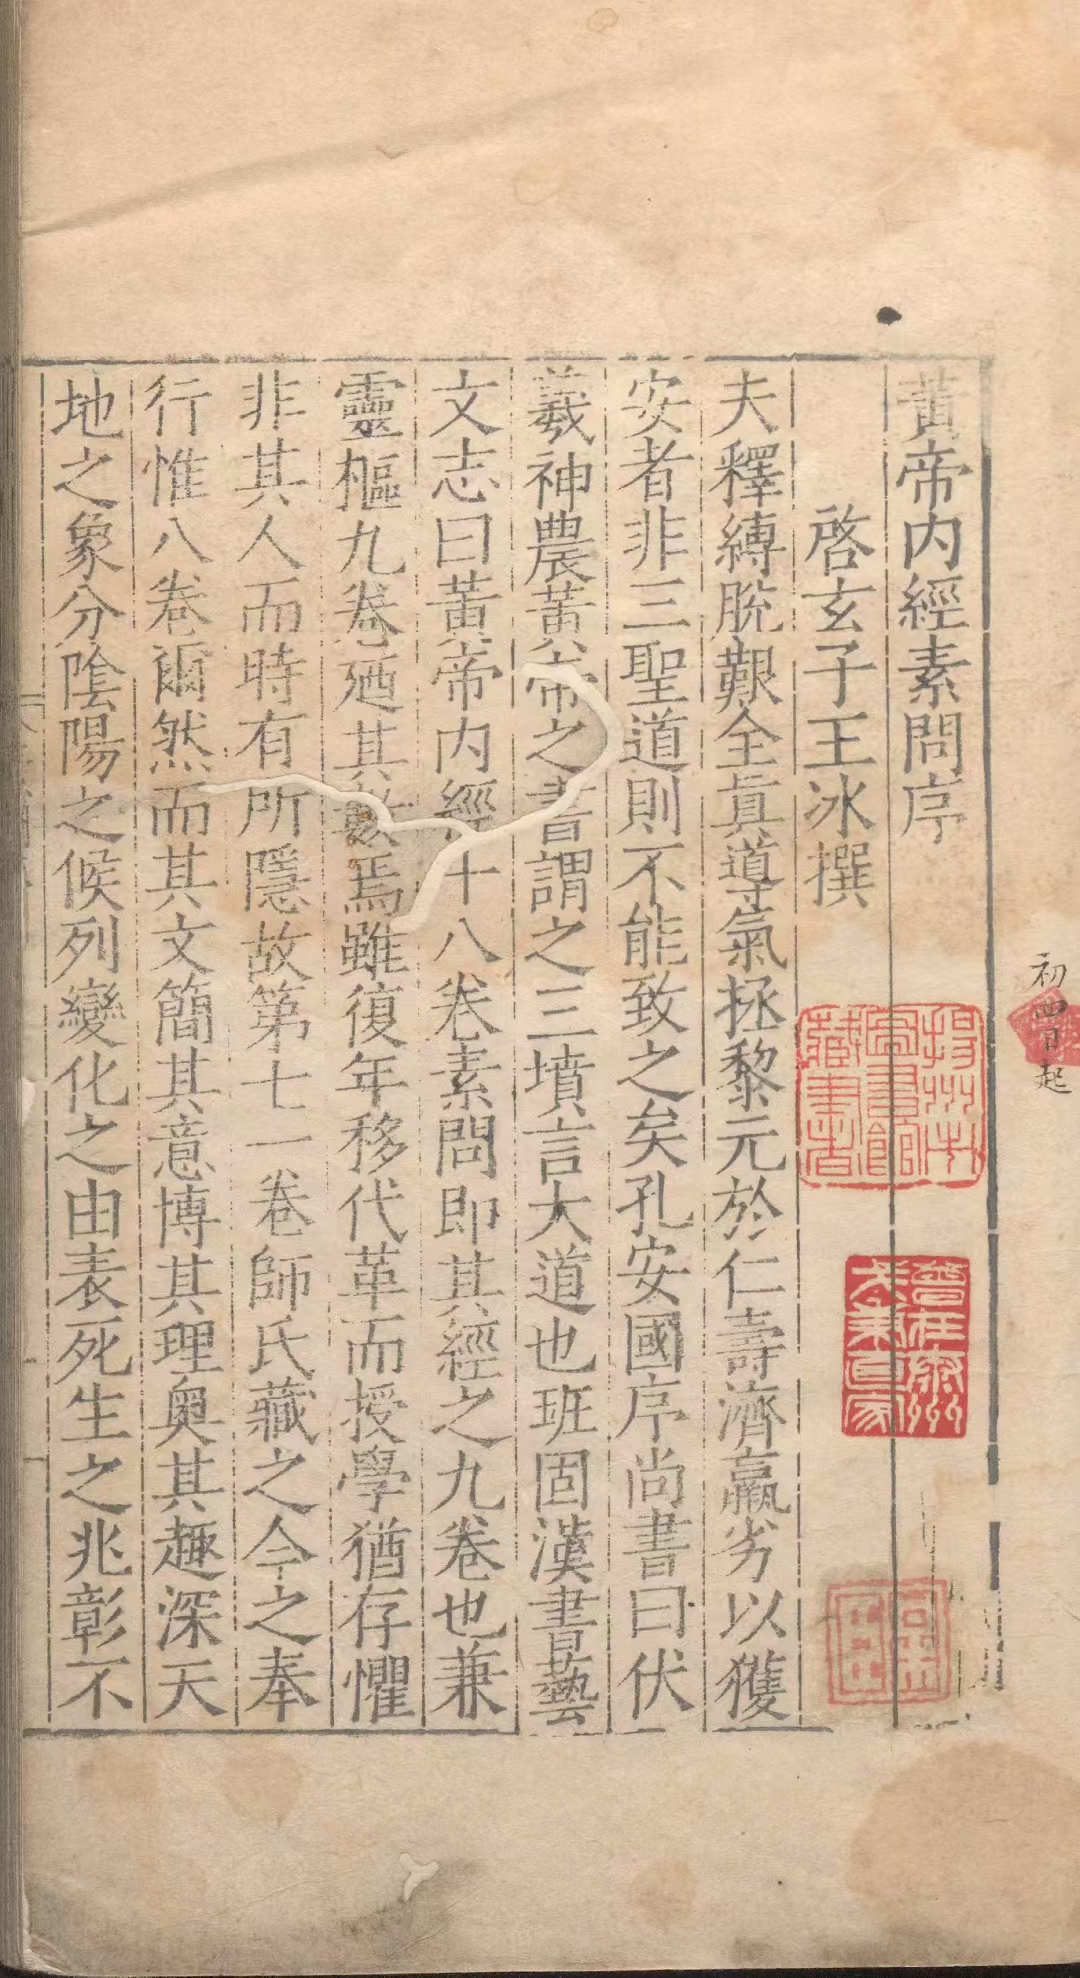 初四日起
黃帝内經素問序
啓玄子王冰撰
夫釋縛脫艱全眞導氣拯黎元於仁壽濟羸劣以獲
安者非三聖道則不能致之矣孔安國序尚書曰伏
羲神農黃帝之書謂之三墳言大道也班固漢書藝
文志曰黃帝内經十八卷素問即其經之九卷也兼
靈樞九卷廼其數焉雖復年移代革而授學猶存懼
非其人而時有所隱故第七一卷師氏藏之今之奉
行惟八卷爾然而其文簡其意博其理奧其趣深天
地之象分陰陽之候列變化之由表死生之兆彰不
揚州市
圖書館
藏書
曾在